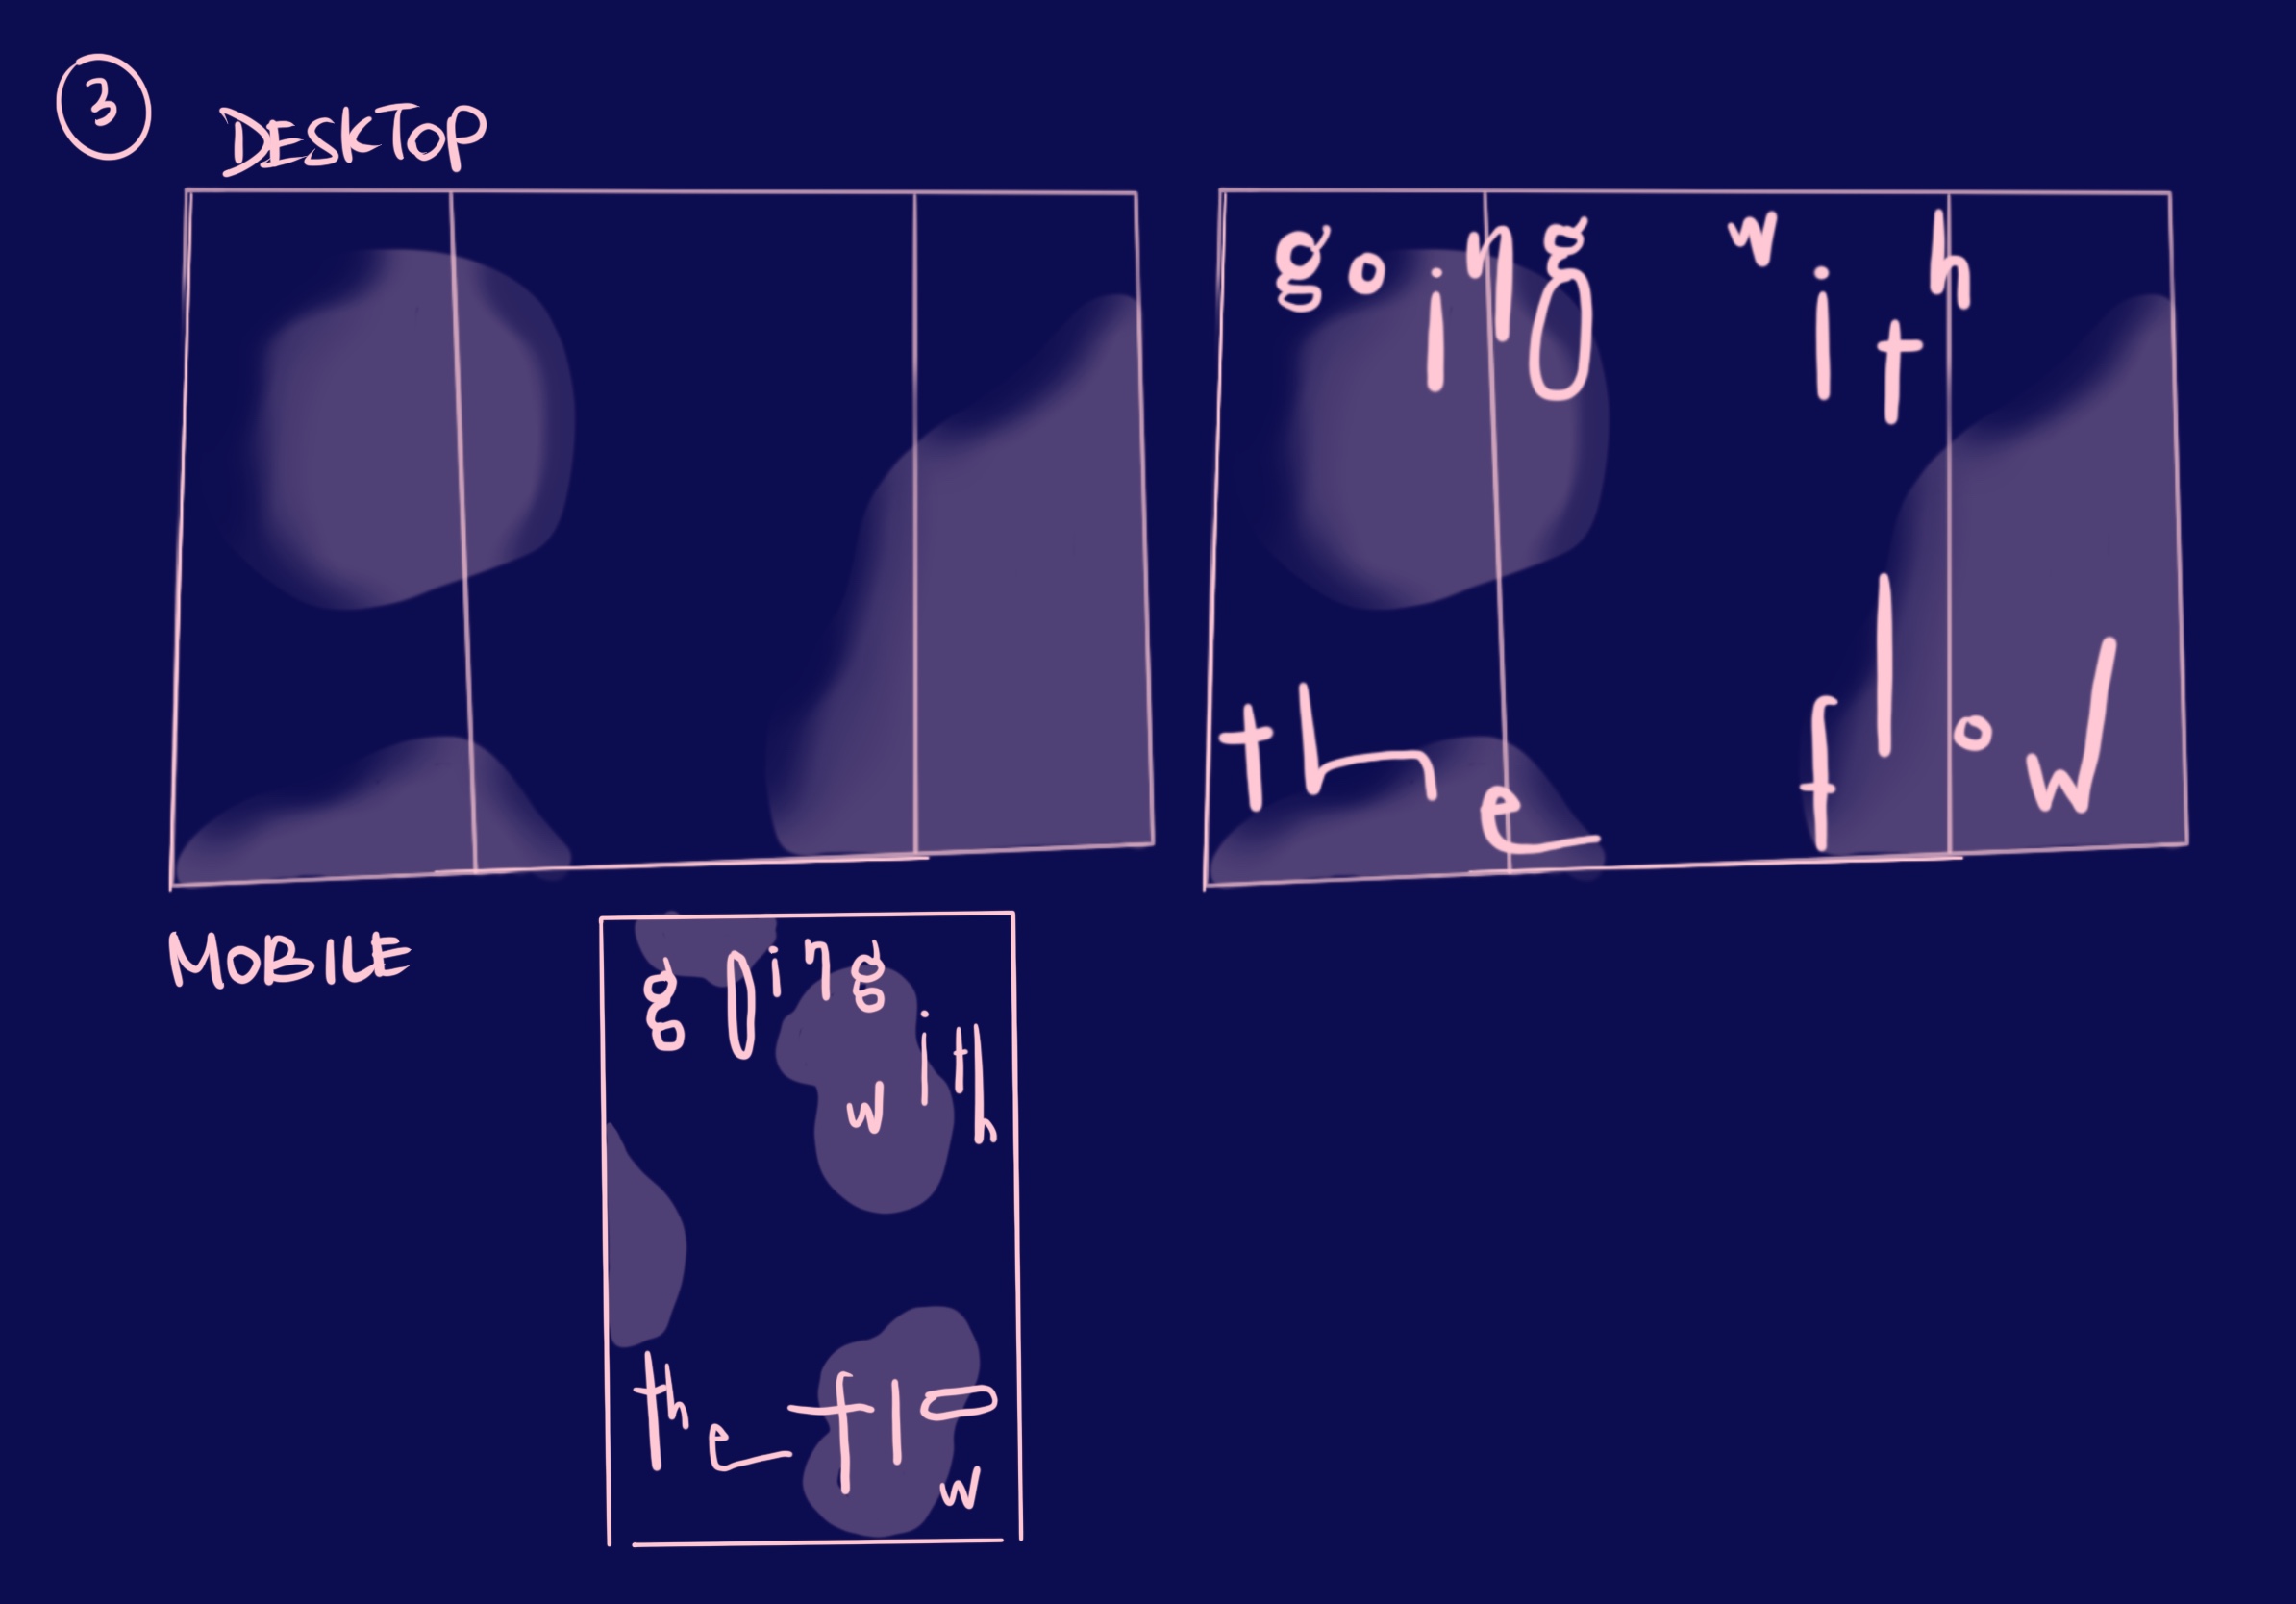 3
DESKTOP
going with
the flow
MOBILE
going
with
the flow